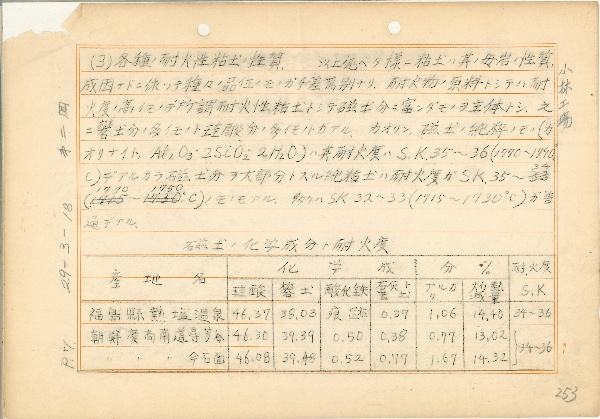 (3) 各種ノ耐火性粘土ノ性質. 以上述ベタ様ニ粘土ハ其ノ母岩ノ性質,
成因ナドニ依ツテ種々ノ品位ノモノガ千差萬別ナリ. 耐火物ノ原料トシテハ耐
火度ノ高イモノデ所謂耐火性粘土トシテ磁土分ニ富ンダモノヲ主体トシ, 之
ニ礬土分ノ多イモノト珪酸分ノ多イモノトガアル. カオリン, 磁土ノ純粋ノモノ(カ
オリナイト, Al₂O₃·2SiO₂·2H₂O)ハ其耐火度ハ S.K. 35〜36 (1770〜1790°
C)デアルカラ磁土分ヲ大部分トスル純粘土ハ耐火度ガ S.K. 35〜
°C)ノモノモアル. SK 32〜33 (1715〜1730°C) ガ普
通デアル.
磁土ノ化学成分ト耐火度
産地名 化学成分 % 耐火度
珪酸 礬土 酸化鉄 アルカリ 灼熱減量 S.K
福島縣熱塩温泉 46.37 38.03 痕跡 0.37 1.06 14.40 34〜36
朝鮮慶尚南道 46.30 39.39 0.50 0.38 0.77 13.02
34〜36
〃 〃 46.08 39.48 0.52 0.77 1.67 14.32
小林工場
29-3-18
253